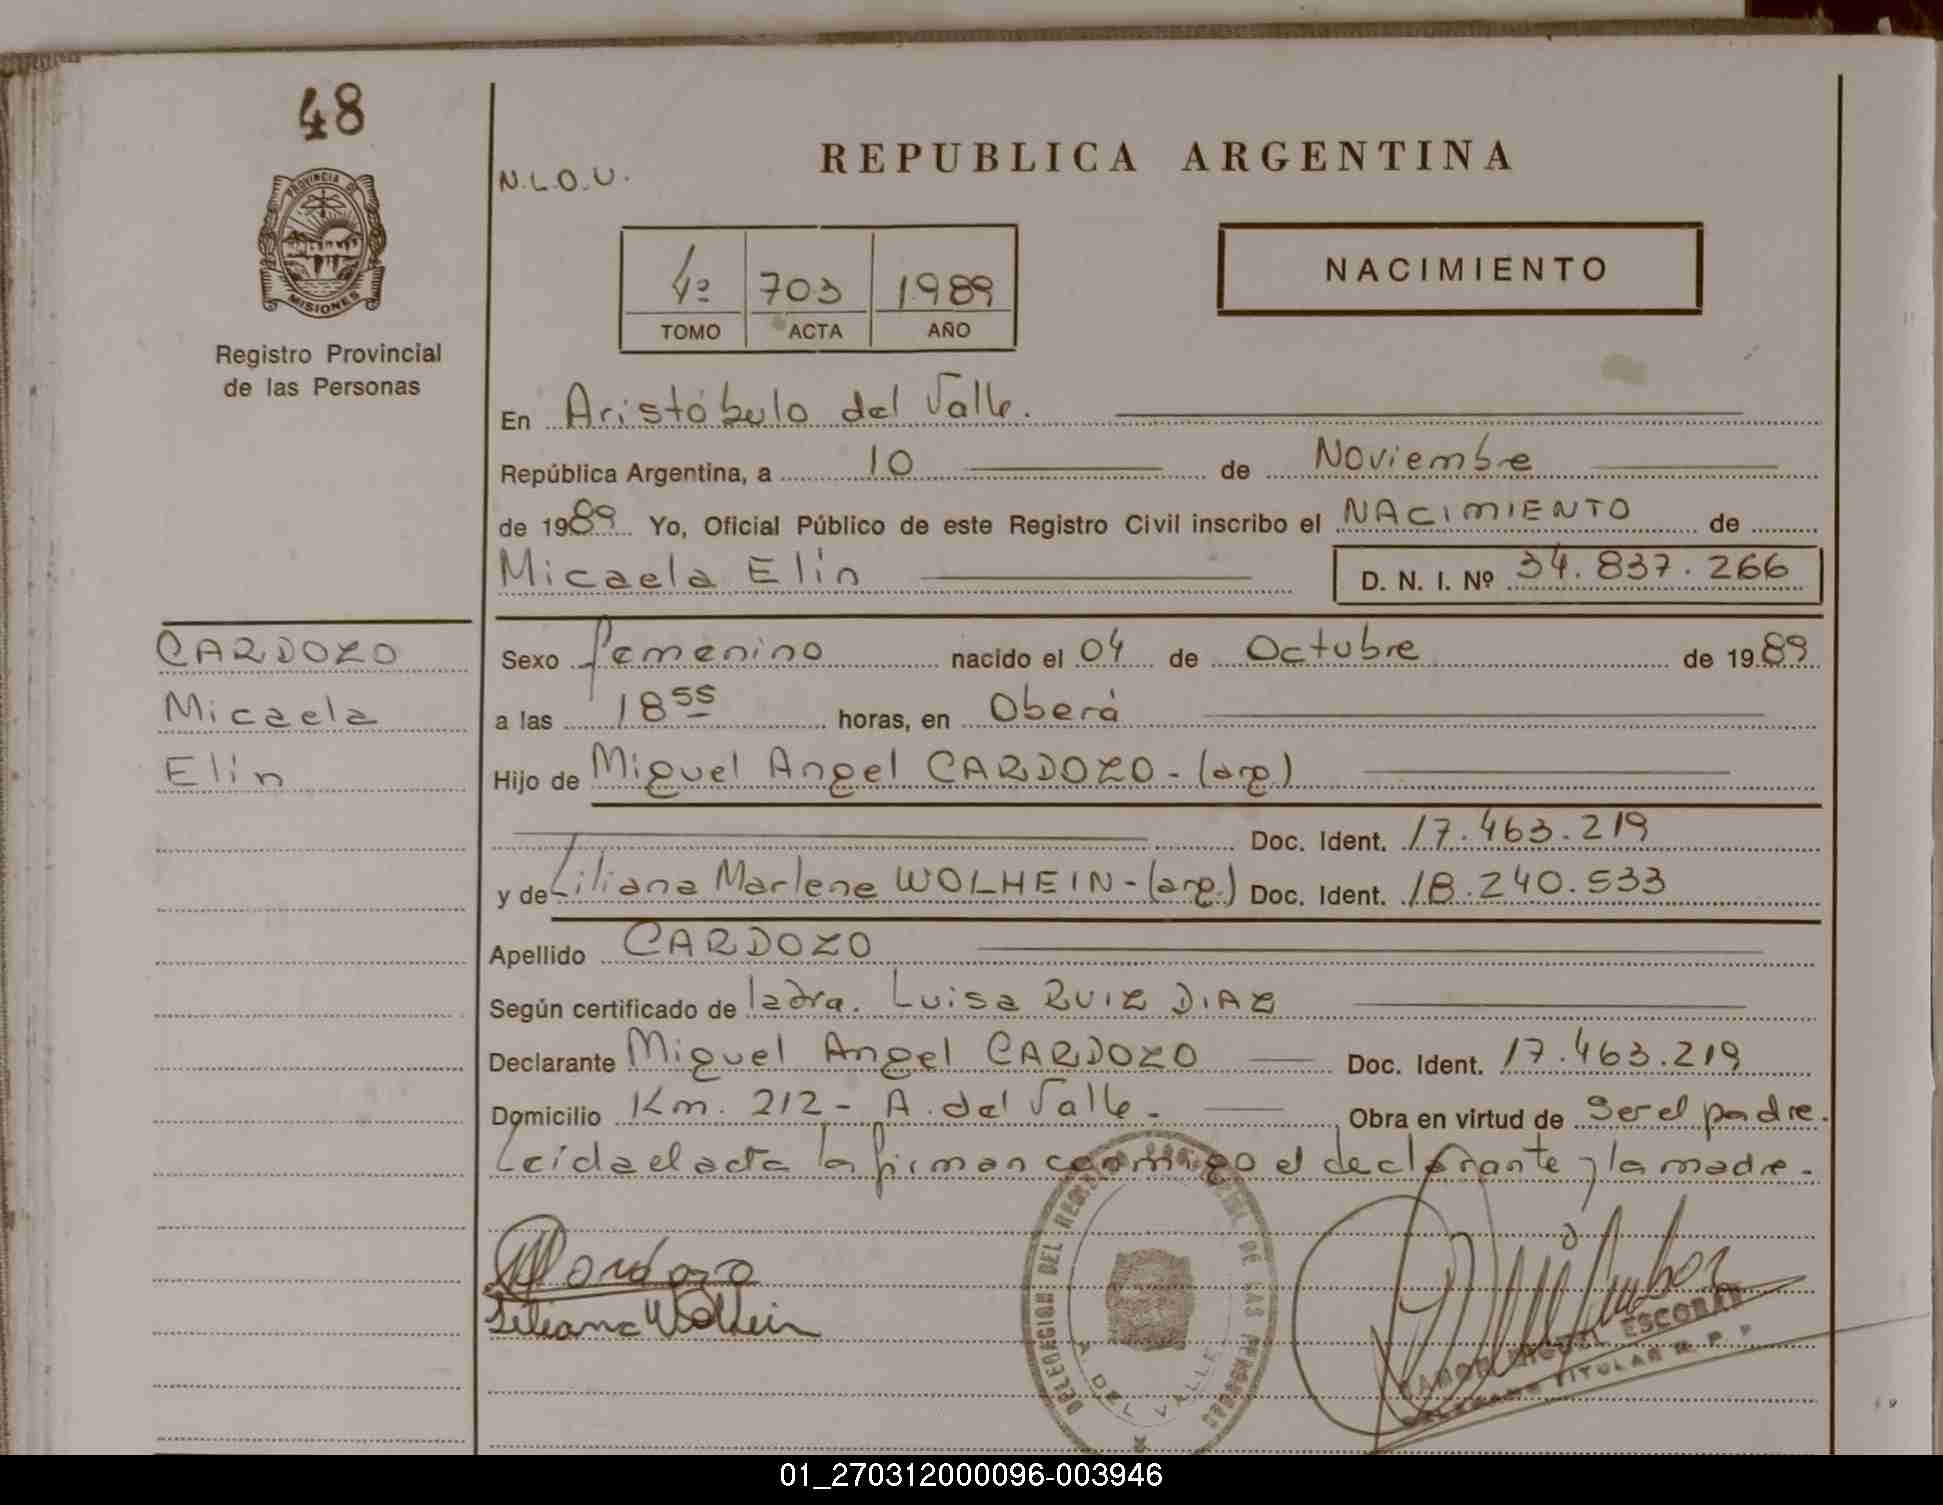 48
PROVINCIA DE
MISIONES
Registro Provincial
de las Personas
N.L.O.U.
REPUBLICA ARGENTINA
NACIMIENTO
703 1989
TOMO ACTA AÑO
En Aristóbulo del Valle.
República Argentina, a 10 de Noviembre
de 1989 Yo, Oficial Público de este Registro Civil inscribo el NACIMIENTO de
Micaela Elín D. N. I. Nº 34.837.266
CARDOZO
Micaela
Elín
Sexo femenino nacido el 04 de Octubre de 1989
a las 18 55 horas, en Oberá
Hijo de Miguel Angel CARDOZO - (arg.)
Doc. Ident. 17.463.219
y de Liliana Marlene WOLHEIN - (arg.) Doc. Ident. 18.240.533
Apellido CARDOZO
Según certificado de la dra. Luisa RUIZ DIAZ
Declarante Miguel Angel CARDOZO Doc. Ident. 17.463.219
Domicilio Km. 212 - A. del Valle - Obra en virtud de Ser el padre.
Leída el acta la firman conmigo el declarante y la madre.
Cardozo
Liliana Wolhein
DELEGACION DEL REGISTRO DE LAS PERSONAS
A. DEL VALLE
RAMON MIGUEL ESCOBAR
TITULAR R. P. P.
01_270312000096-003946